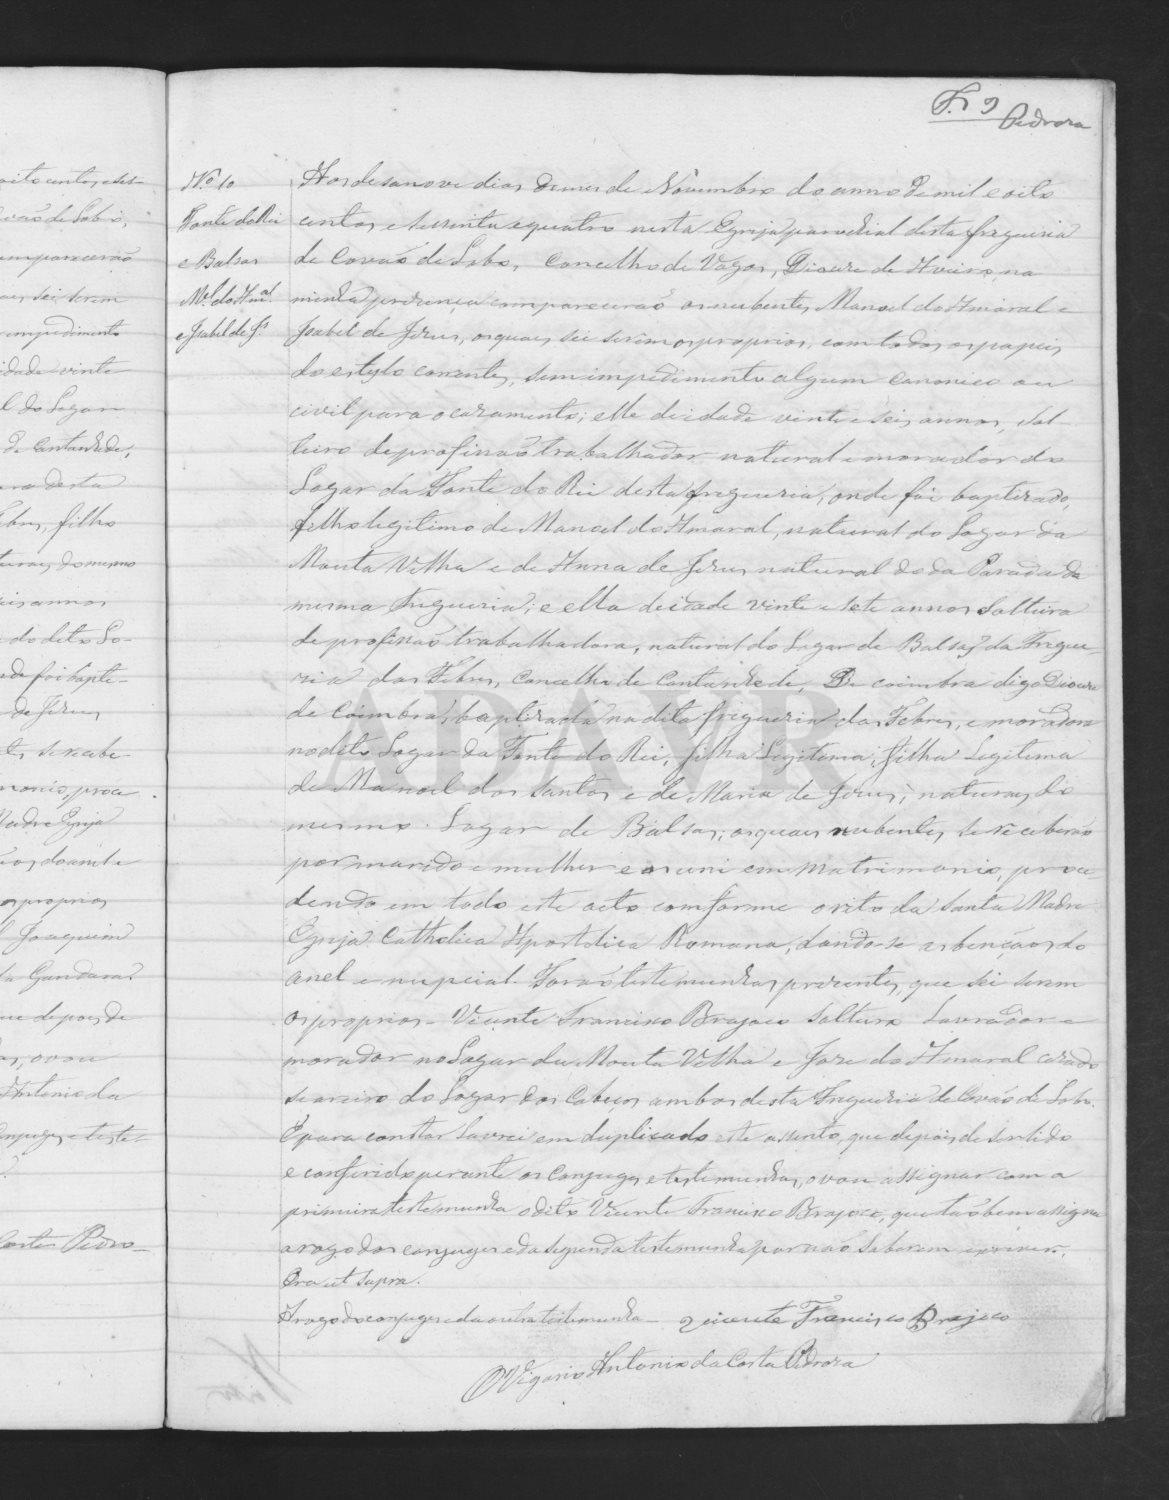 Fl. 9 Pedroza
Nº 10
Fonte do Rei
e Balsas
Mel. do Amal.
e Isabel de Js.
Aos desanove dias domes de Novembro do anno de mil e oito
centos e secenta e quatro nesta Egreja parochial desta freguesia
de Covão de Lobo, Concelho de Vagos, Diocese de Aveiro, na
minha presença comparecerão os nubentes Manoel do Amaral e
Isabel de Jesus, os quaes sei serem os proprios, com todos os papeis
do estylo correntes, sem impedimento algum canonico ou
civil para o cazamento; elle de idade vinte e seis annos, sol-
teiro de profissão trabalhador natural e morador do
Logar da Fonte do Rei desta freguesia, onde foi baptizado,
filho legitimo de Manoel do Amaral, natural do Logar da
Mouta Velha e de Anna de Jesus natural do da Parada da
mesma Freguesia; e ella de idade vinte e sete annos Solteira
de profissão trabalhadora, natural do Logar de Balsas da Fregue-
zia das Febres, Concelho de Cantanhede, De coimbra digo Diocese
de Coimbra, baptizada na dita freguesia das Febres, e moradora
no dito Logar da Fonte do Rei, filha Legitima, filha Legitima
de Manoel dos Santos e de Maria de Jesus, naturaes do
mesmo Logar de Balsas; os quaes nubentes se receberão
por marido e mulher e os uni em Matrimonio, proce-
dendo em todo este acto comforme o rito da Santa Madre
Egreja Catholica Apostolica Romana, dando-se as bençãos do
anel e nupcial. Forão testemunhas prezentes, que sei serem
os proprios - Vicente Francisco Brajoco Solteiro Lavrador e
morador no Logar da Mouta Velha e Joze do Amaral cazado
seareiro do Logar dos Cabeços ambos desta Freguesia de Covão de Lobo.
E para constar Lavrei em duplicado este assento, que depois de ser lido
e conferido perante os Conjuges e testemunhas, o vou assignar com a
primeira testemunha o dito Vicente Francisco Brajoco, que tãobem assigna
a rogo dos conjuges e da segunda testemunha por não saberem escrever.
Era ut supra.
A rogo dos conjuges e da outra testemunha - Vicente Francisco Brajoco
O Vigario Antonio da Costa Pedroza
ADAVR